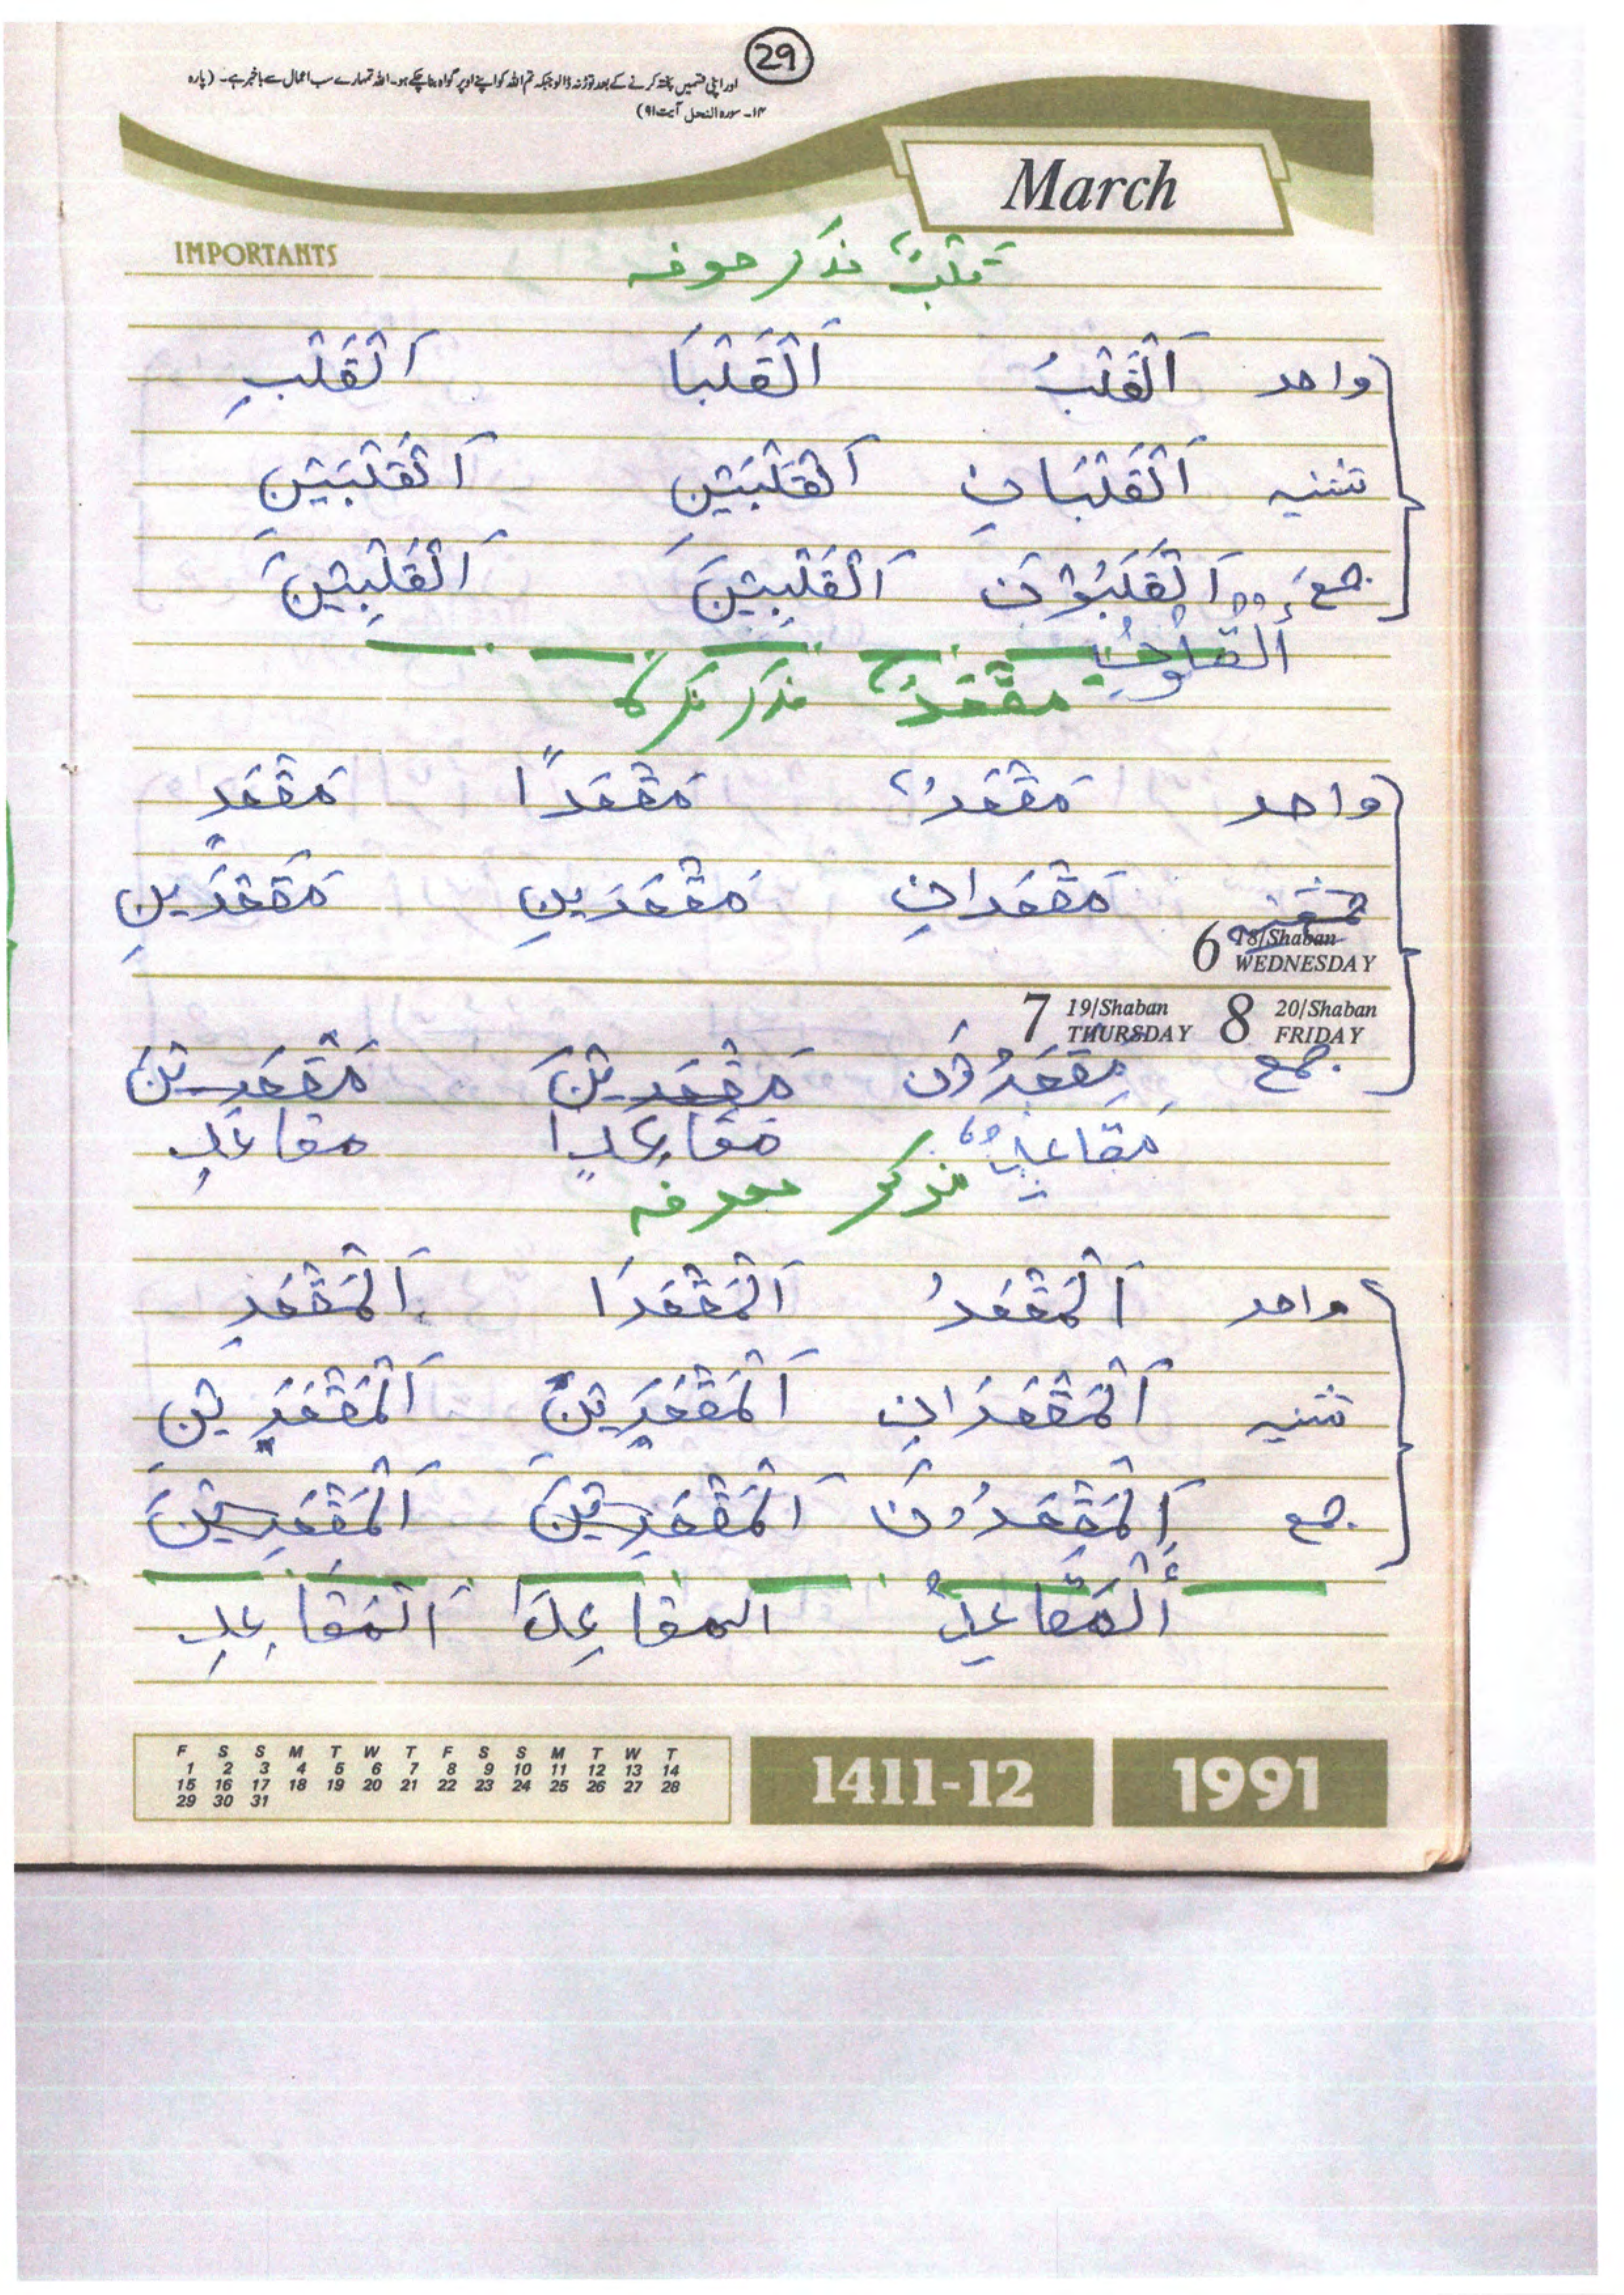 29
اور اپنی قسمیں پختہ کرنے کے بعد توڑ نہ ڈالو جبکہ تم اللہ کو اپنے اوپر گواہ بنا چکے ہو۔ اللہ تمہارے سب اعمال سے باخبر ہے۔ (پارہ
۱۴۔ سورہ النحل آیت ۹۱)
March
IMPORTANTS
قلبٌ مذکر معرفہ
واحد اَلْقَلْبُ اَلْقَلْبَا اَلْقَلْبِ
تثنیہ اَلْقَلْبَانِ اَلْقَلْبَیْنِ اَلْقَلْبَیْنِ
جمع اَلْقَلَبُوْنَ اَلْقَلْبِیْنَ اَلْقَلْبِیْنَ
اَلْقلُوبُ
مقْعَدٌ مذکر نکرہ
واحد مَقْعَدٌ مَقْعَدًا مَقْعَدٍ
مَقْعَدَانِ مَقْعَدَیْنِ مَقْعَدَیْنِ
6 18/Shaban WEDNESDAY
7 19/Shaban THURSDAY 8 20/Shaban FRIDAY
جمع مَقْعَدُوْنَ مَقْعَدِیْنَ مَقْعَدِیْنَ
مَقَاعِدٌ مَقَاعِدًا مقاعدٍ
مذکر معرفہ
واحد اَلْمَقْعَدُ اَلْمَقْعَدَا اَلْمَقْعَدِ
تثنیہ اَلْمَقْعَدَانِ اَلْمَقْعَدَیْنِ اَلْمَقْعَدَیْنِ
جمع اَلْمَقْعَدُوْنَ اَلْمَقْعَدِیْنَ اَلْمَقْعَدِیْنَ
اَلْمَقَاعِدُ المقاعِدَا اَلْمَقَاعِدِ
F S S M T W T F S S M T W T
1 2 3 4 5 6 7 8 9 10 11 12 13 14
15 16 17 18 19 20 21 22 23 24 25 26 27 28
29 30 31
1411-12 1991